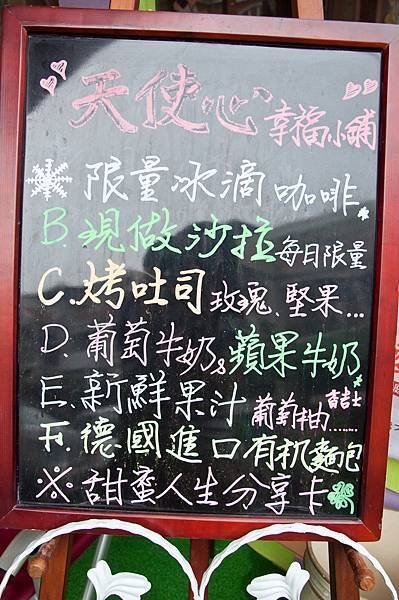 天使心 幸福小舖
限量冰滴咖啡
B. 現做沙拉 每日限量
C. 烤吐司 玫瑰、堅果...
D. 葡萄牛奶&蘋果牛奶
E. 新鮮果汁 葡萄柚...... 香吉士
F. 德國進口有机麵包
※ 甜蜜人生分享卡